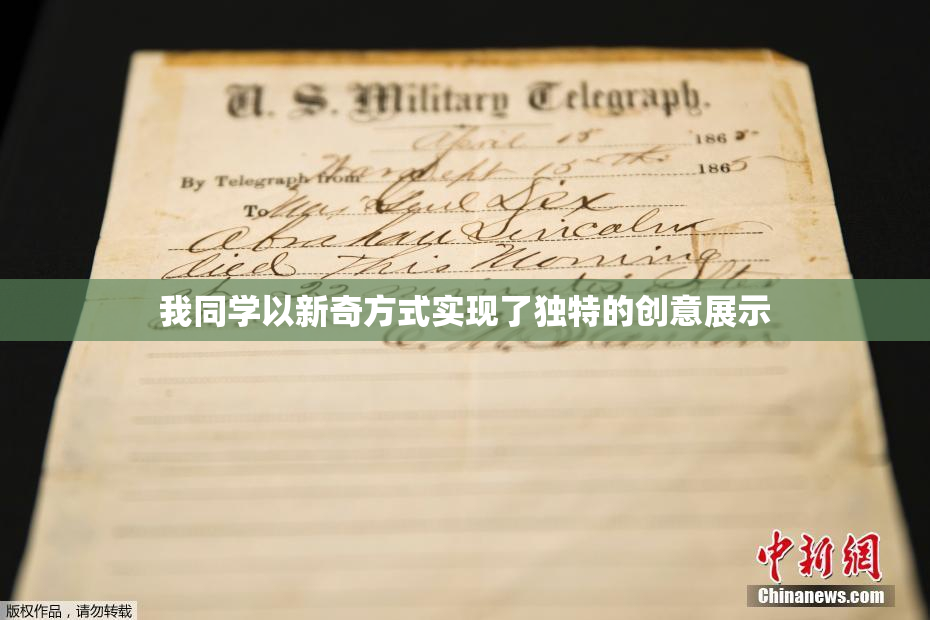 U. S. Military Telegraph.
April 15 1865
By Telegraph from War Dept 15th 1865
To Maj Genl Dix
Abraham Lincoln
died This Morning
at 22 minutes after
我同学以新奇方式实现了独特的创意展示
E. M. Stanton
中新网
Chinanews.com
版权作品，请勿转载